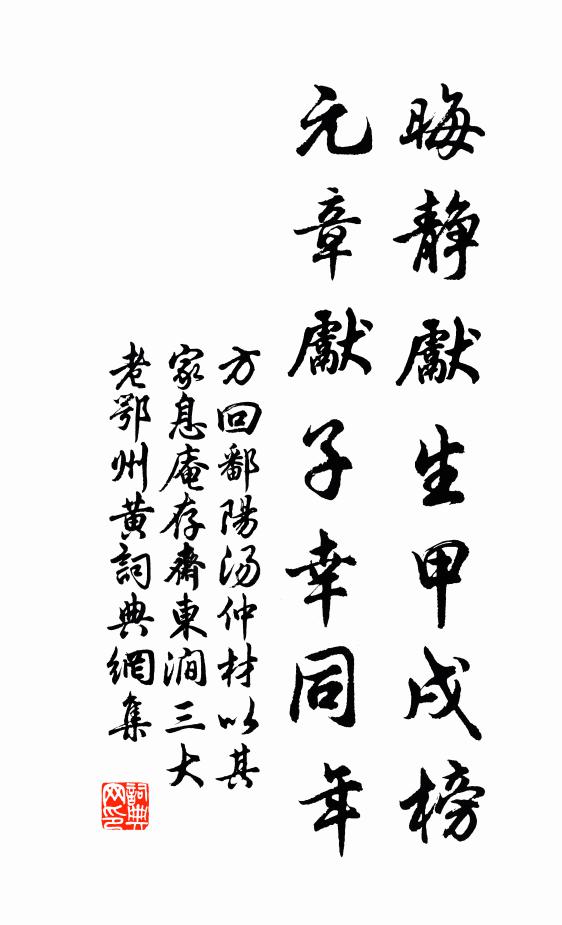 晦靜獻生甲戌榜
元章獻子幸同年
方回鄱陽汤仲材以其
家息庵存齋東澗三大
老鄂州黄詞典網集
詞典网印